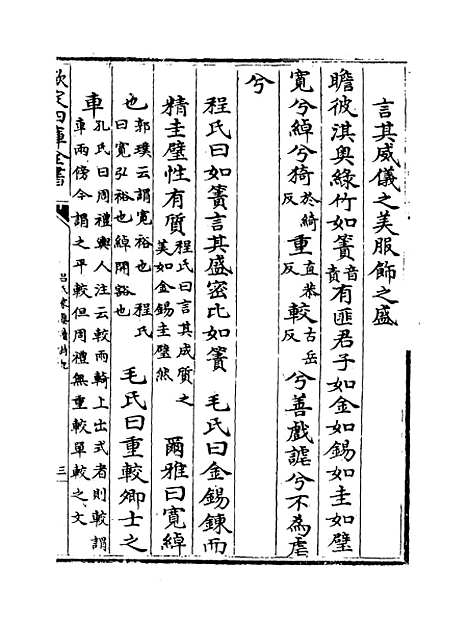 言其威儀之美服飾之盛
瞻彼淇奧綠竹如簀音責有匪君子如金如錫如圭如璧
寛兮綽兮猗於綺反重直恭反較古岳反兮善戲謔兮不為虐
兮
程氏曰如簀言其盛密比如簀　毛氏曰金錫鍊而
精圭璧性有質程氏曰言其成質之美如金錫圭璧然　爾雅曰寛綽
也郭璞云謂寛裕也　程氏曰寛弘裕也綽開豁也　毛氏曰重較卿士之
車孔氏曰周禮輿人注云較兩輢上出式者則較謂車兩傍今謂之平較但周禮無重較單較之文
欽定四庫全書
呂氏家塾讀詩記
三